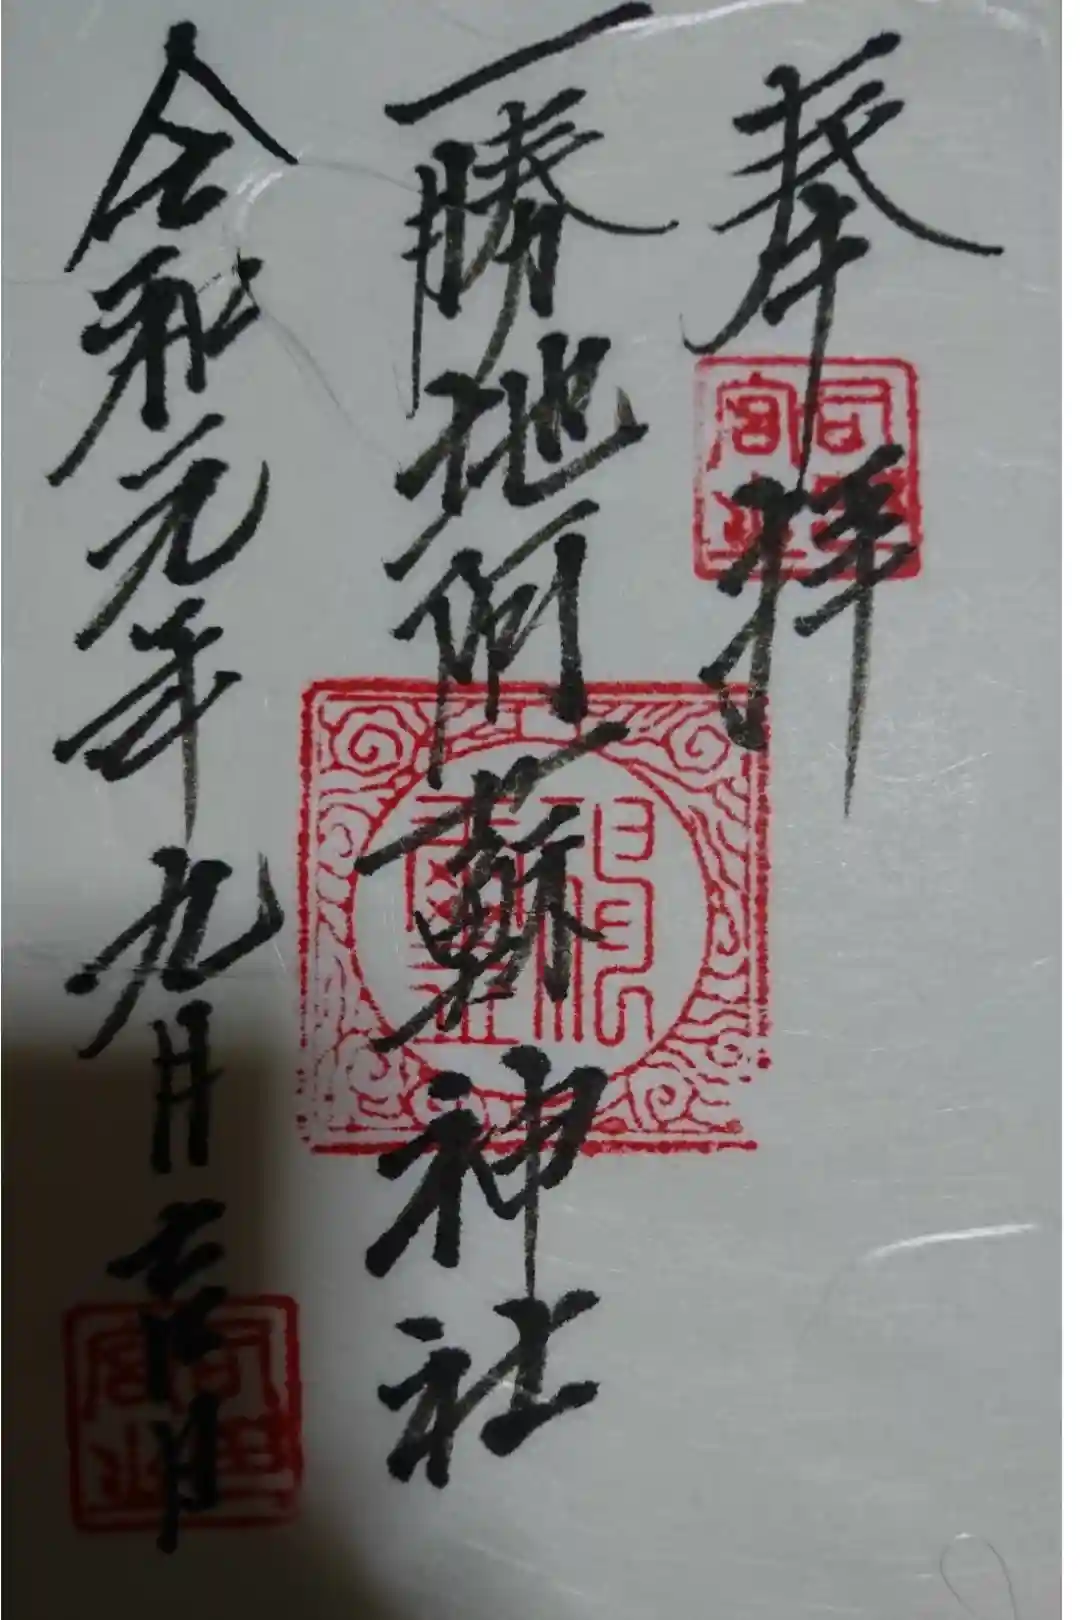 奉拝
一勝地阿蘇神社
令和元年九月吉日